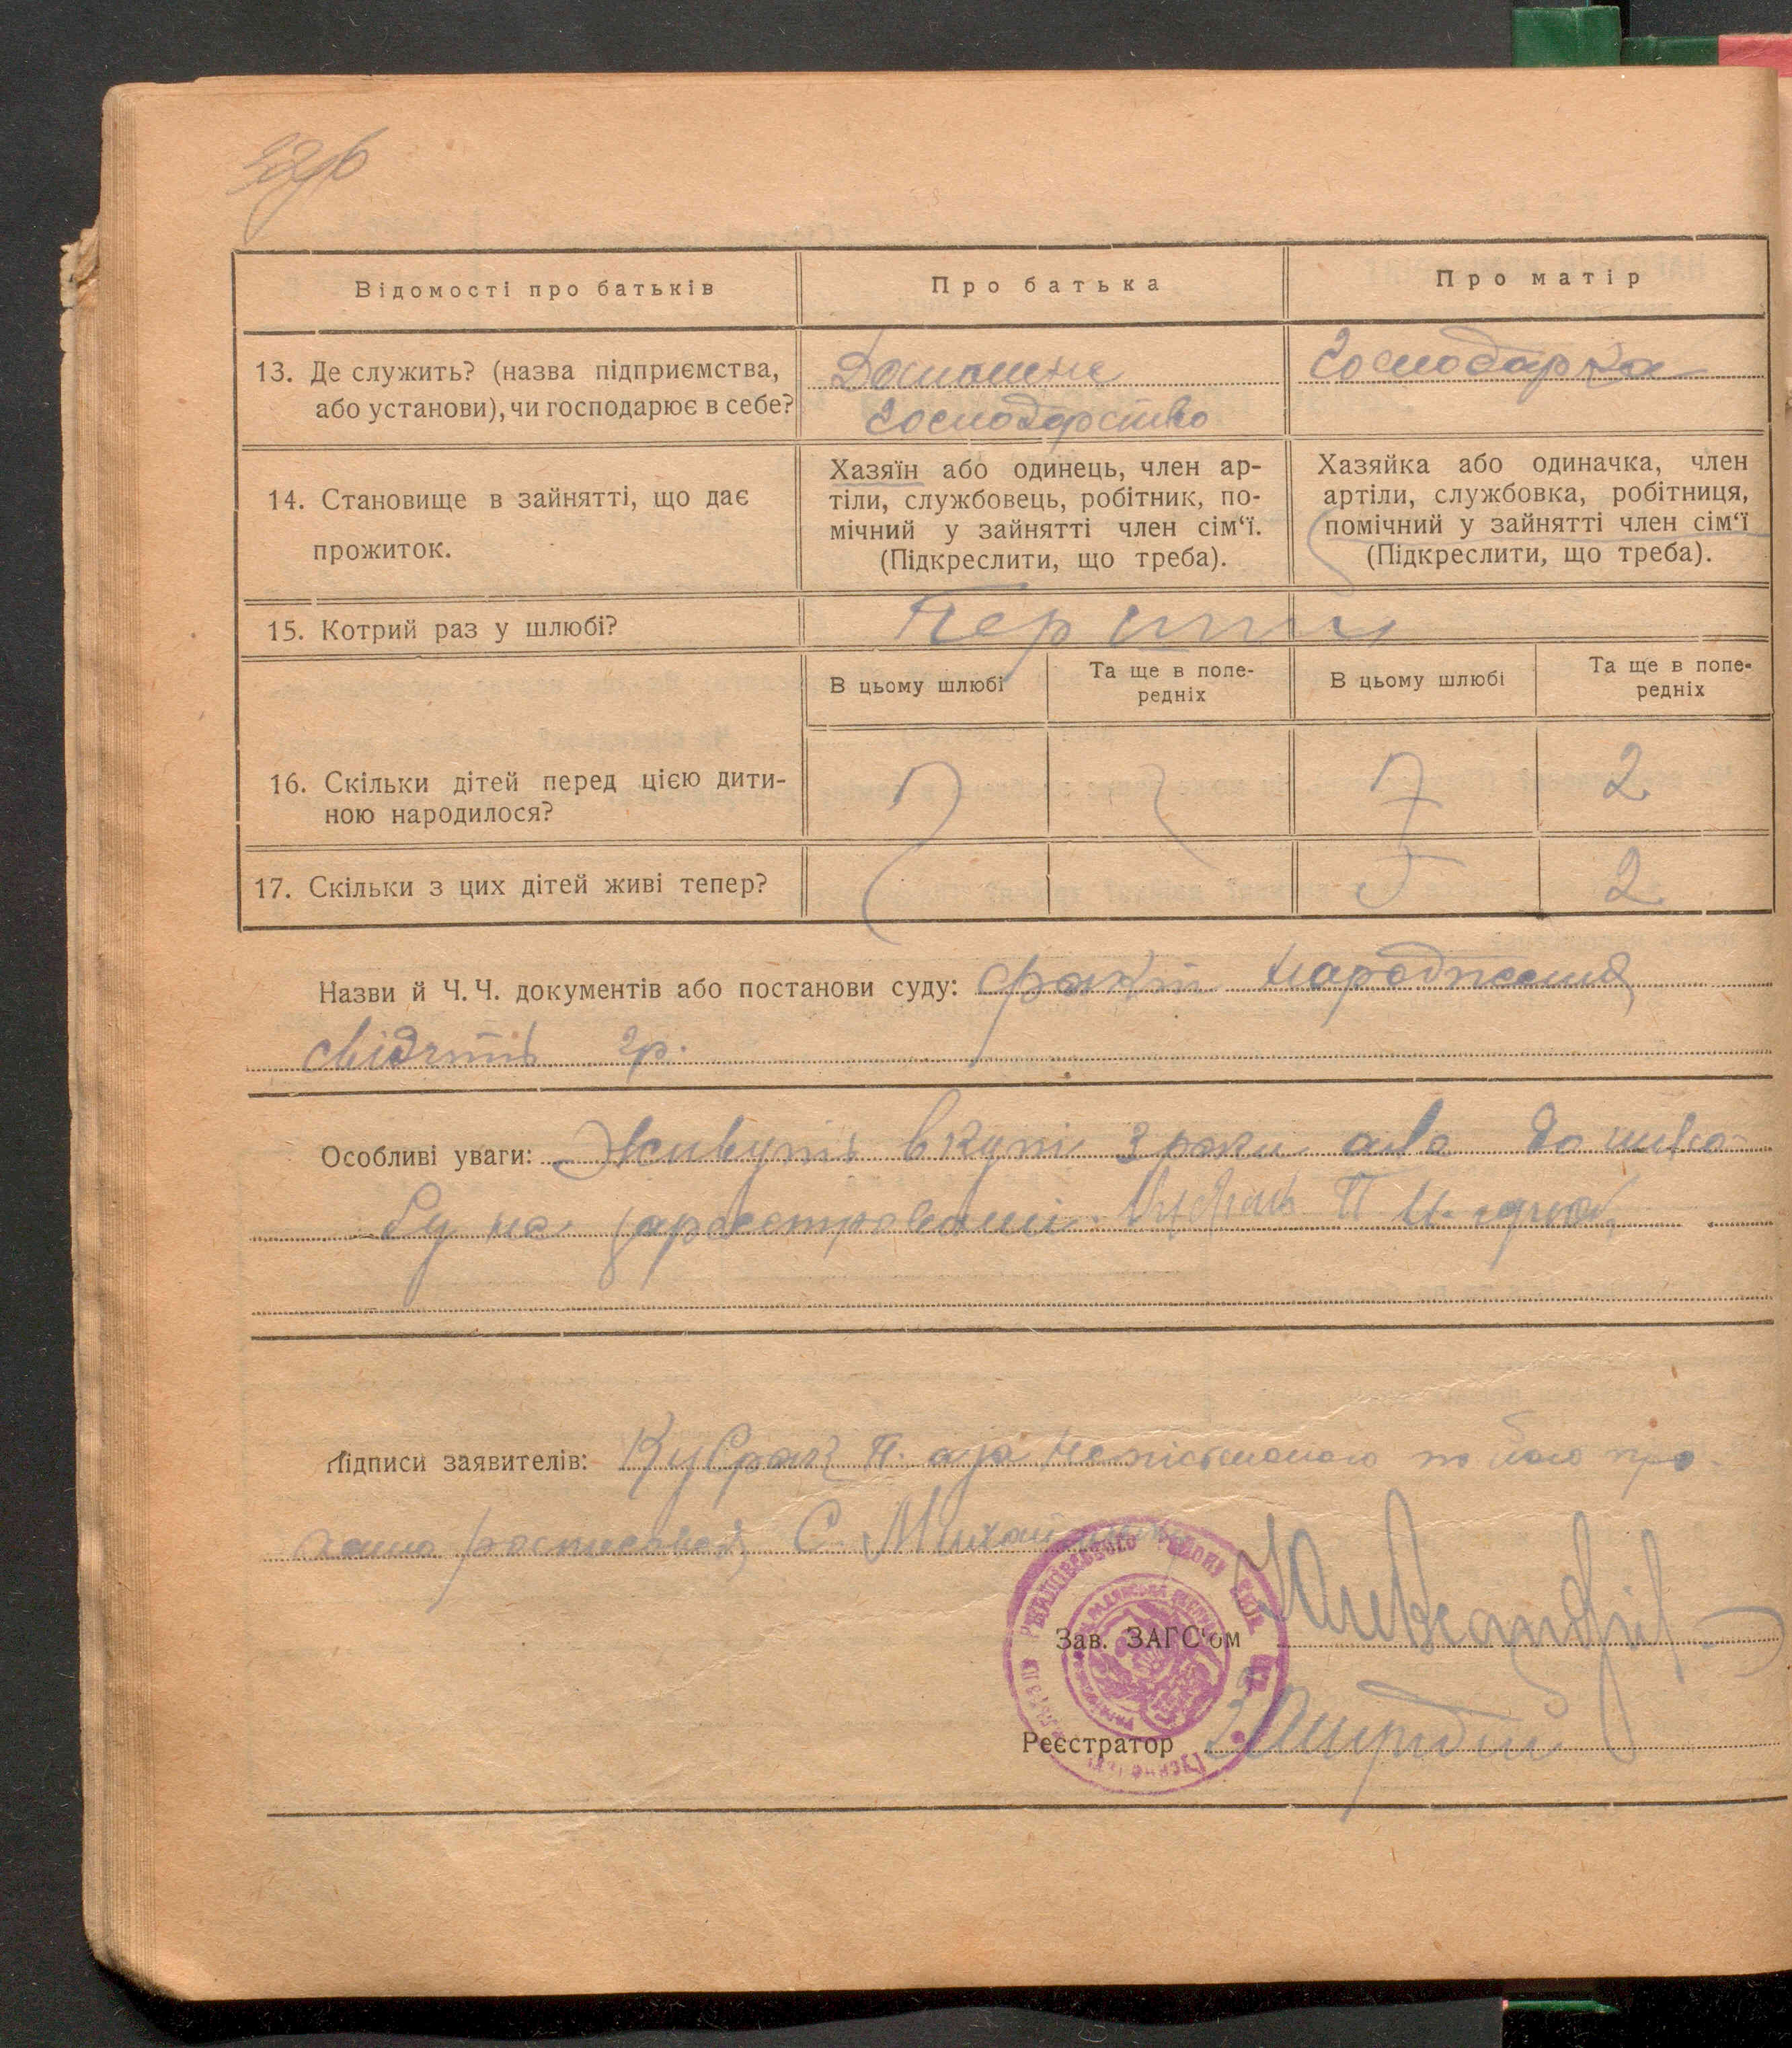 Відомості про батьків
Про батька
Про матір
13. Де служить? (назва підприємства,
або установи), чи господарює в себе?
Домашнє
господарство
Господарка
14. Становище в зайнятті, що дає
прожиток.
Хазяїн або одинець, член ар-
тіли, службовець, робітник, по-
мічний у зайнятті член сім‘ї.
(Підкреслити, що треба).
Хазяйка або одиначка, член
артіли, службовка, робітниця,
помічний у зайнятті член сім‘ї
(Підкреслити, що треба).
15. Котрий раз у шлюбі?
Перший
В цьому шлюбі
Та ще в попе-
редніх
В цьому шлюбі
Та ще в попе-
редніх
16. Скільки дітей перед цією дити-
ною народилося?
7
2
17. Скільки з цих дітей живі тепер?
5
2
Назви й Ч. Ч. документів або постанови суду: факт народження
свідчить гр.
Особливі уваги: Живуть вкупі 3 роки але до шлю-
бу не зареєстровані.
Підписи заявителів: Кубрак П. а за неписьменого по його про-
ханю росписався С.
Зав. ЗАГС‘ом
Реєстратор